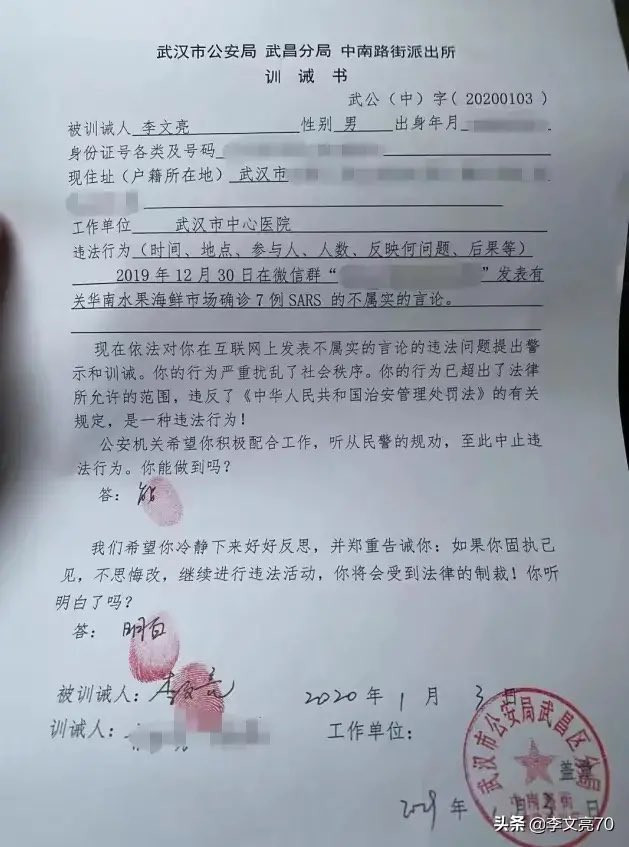 武汉市公安局 武昌分局 中南路街派出所
训 诫 书
武公(中)字(20200103)
被训诫人 李文亮 性别 男 出身年月
身份证号各类及号码
现住址(户籍所在地) 武汉市
工作单位 武汉市中心医院
违法行为(时间、地点、参与人、人数、反映何问题、后果等)
2019年12月30日在微信群“ ”发表有
关华南水果海鲜市场确诊7例SARS 的不属实的言论。
现在依法对你在互联网上发表不属实的言论的违法问题提出警
示和训诫。你的行为严重扰乱了社会秩序。你的行为已超出了法律
所允许的范围,违反了《中华人民共和国治安管理处罚法》的有关
规定,是一种违法行为!
公安机关希望你积极配合工作,听从民警的规劝,至此中止违
法行为。你能做到吗?
答: 能
我们希望你冷静下来好好反思,并郑重告诫你:如果你固执己
见,不思悔改,继续进行违法活动,你将会受到法律的制裁!你听
明白了吗?
答: 明白
被训诫人: 李文亮 2020 年 1 月 3 日
训诫人: 工作单位:
武汉市公安局武昌区分局
盖章
年 月 日
头条 @李文亮70